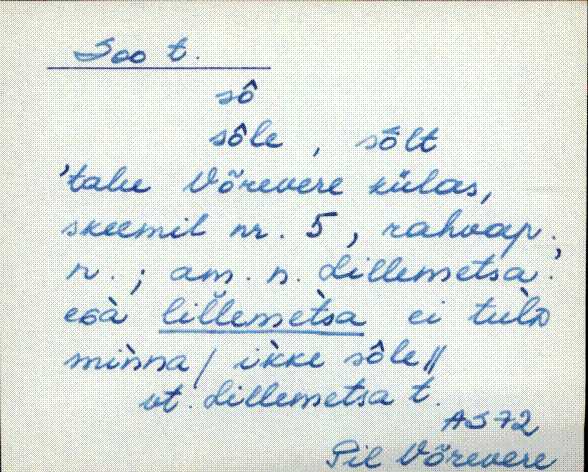 Soo t.
sô
sôle, sôlt
'talu Võrevere külas,
skeemil nr. 5, rahvap.
n.; am. n. Lillemetsa.'
lìllemètsa ei
mìnna / ìkke sôle ||
vt. Lillemetsa t.
AS72
Pil Võrevere